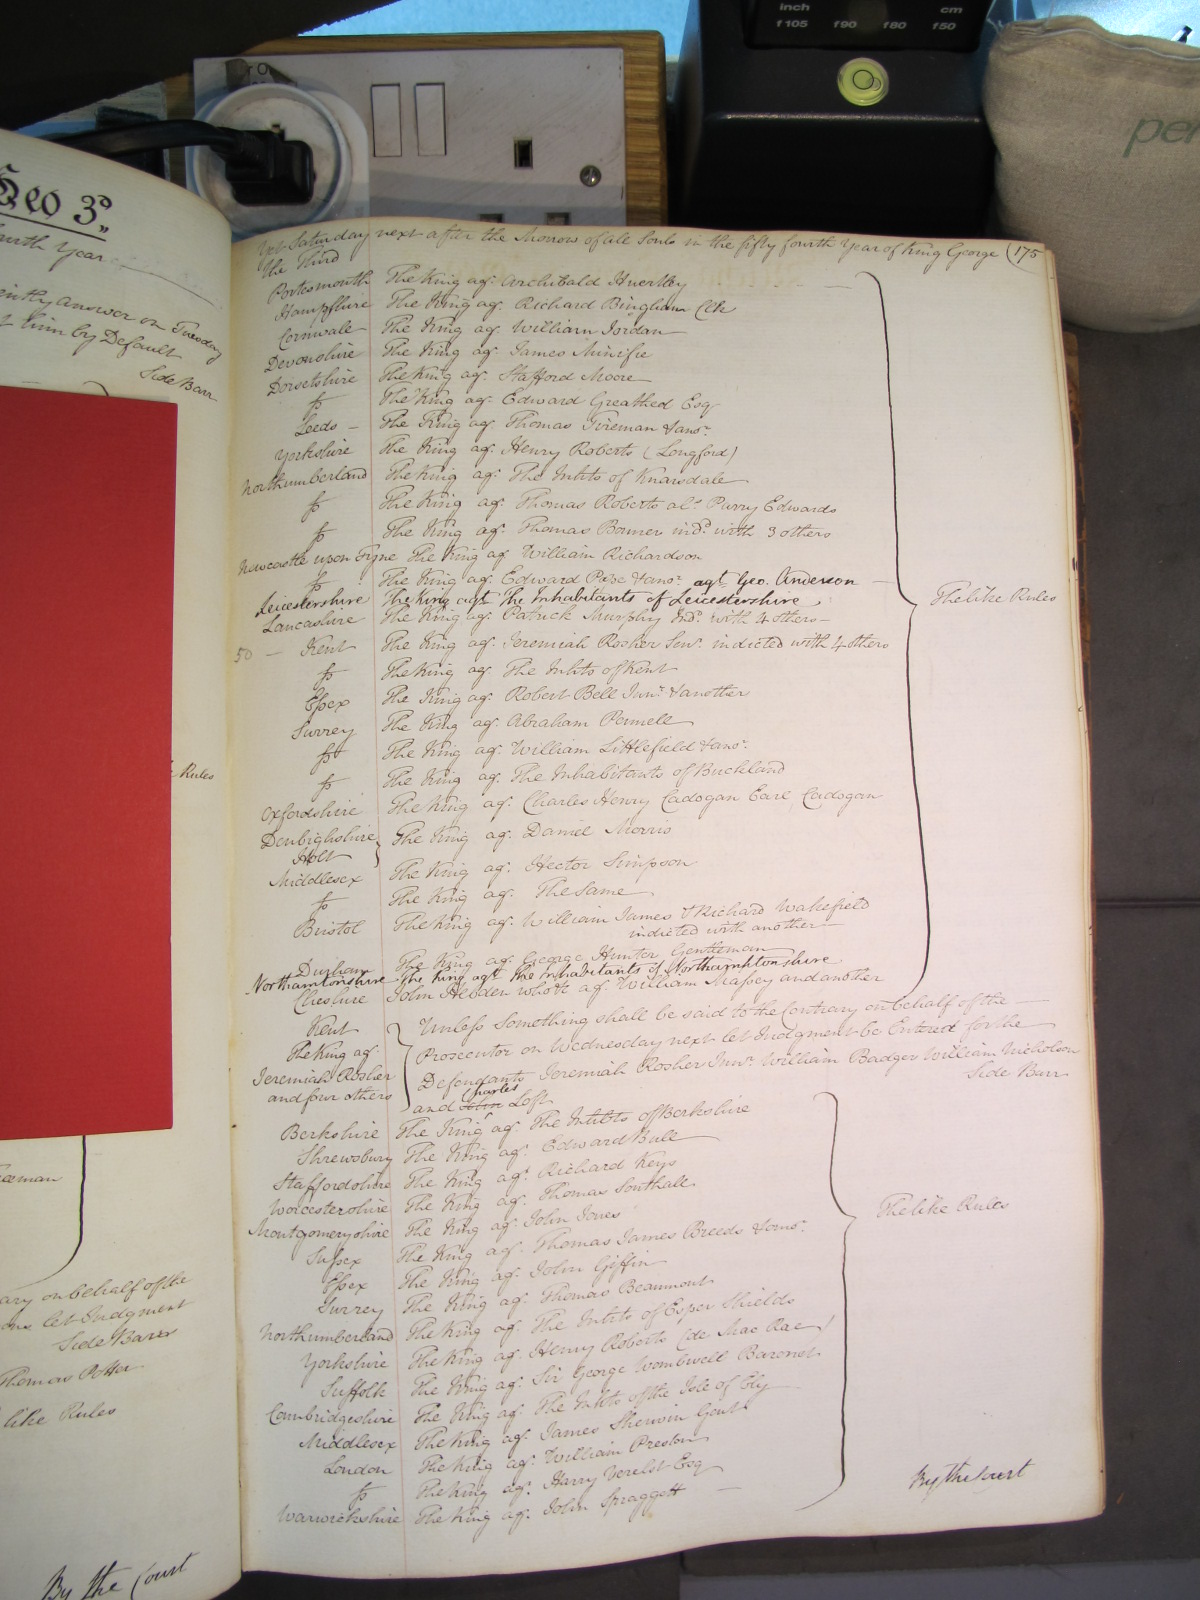 inch cm
f105 f90 f80 f50
per
Geo 3d.
fourth Year
ently answer on Tuesday
t him by Default
Side Barr
Rules
ary on behalf of the
let Judgment
Side Barr
Thomas Potter
like Rules
By the Court
Yet Saturday next after the Morrow of all Souls in the fifty fourth Year of King George (175
the Third
Portesmouth The King agt. Archibald Huertley
Hampshire The King agt. Richard Bingham Clk
Cornwale The King agt. William Jordan
Devonshire The King agt. James Minifie
Dorsetshire The King agt. Stafford Moore
fs The King agt. Edward Greathed Esq
Leeds – The King agt. Thomas Fireman & anor.
Yorkshire The King agt. Henry Roberts (Longford)
Northumberland The King agt. The Inhts of Knarsdale
fs The King agt. Thomas Roberts als. Parry Edwards
fs The King agt. Thomas Bonner indd. with 3 others
Newcastle upon Tyne The King agt William Richardson
fs The King agt. Edward Pape & anor. agt. Geo. Anderson
Leicestershire The King agt the Inhabitants of Leicestershire
Lancashire The King agt. Patrick Murphy Indd. with 4 others –
50 – Kent The King agt. Jeremiah Rosher Senr. indicted with 4 others
fs The King agt. The Inhts of Kent
Essex The King agt. Robert Bell Junr. & another
Surrey The King agt. Abraham Pennell
fs The King agt. William Littlefield & anor.
fs The King agt. The Inhabitants of Buckland
Oxfordshire The King agt. Charles Henry Cadogan Earl Cadogan
Denbighshire The King agt. Daniel Morris
Holt
Middlesex The King agt. Hector Simpson
fs The King agt. The Same
Bristol The King agt. William James & Richard Wakefield
indicted with another
Durham The King agt. George Hunter Gentleman
Northamtonshire The King agt the Inhabitants of Northamptonshire
Cheshire John Hebden who &c agt. William Massey and another
The like Rules
Kent
The King agt.
Jeremiah Rosher
and four others
Unless Something shall be said to the Contrary on behalf of the
Prosecutor on Wednesday next let Judgment be Entered for the
Defendants Jeremiah Rosher Junr. William Badger William Nicholson
and John Charles Loft
Side Barr
Berkshire The King agt. The Inhts of Berkshire
Shrewsbury The King agt. Edward Bull
Staffordshire The King agt. Richard Keys
Worcestershire The King agt. Thomas Southall
Montgomeryshire The King agt. John Jones
Sussex The King agt. Thomas James Breeds & anor.
Essex The King agt. John Giffin
Surrey The King agt. Thomas Beaumont
Northumberland The King agt. The Inhts of Esper Shields
Yorkshire The King agt. Henry Roberts (de Mac Rae)
Suffolk The King agt. Sir George Wombwell Baronet
Cambridgeshire The King agt. The Inhts of the Isle of Ely
Middlesex The King agt. James Sherwin Gent
London The King agt. William Preston
fs The King agt. Harry Verelst Esq
Warwickshire The King agt. John Spraggett
The like Rules
By the Court